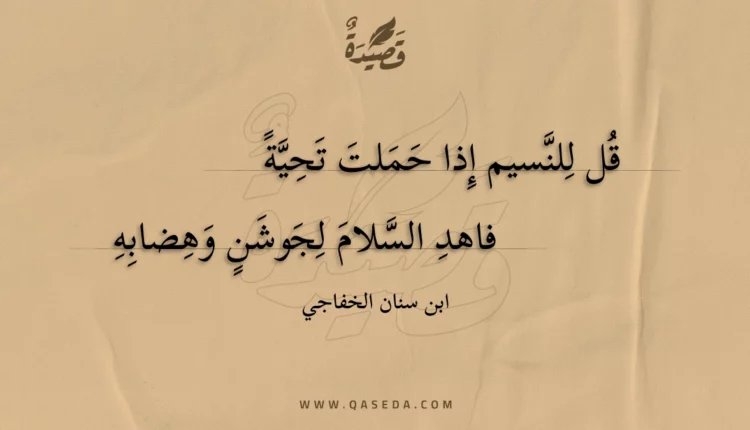 قَصِيْدَةٌ
قُل لِلنَّسيم إِذا حَمَلتَ تَحِيَّةً
فاهدِ السَّلامَ لِجَوشَنٍ وَهِضابِهِ
ابن سنان الخفاجي
WWW.QASEDA.COM